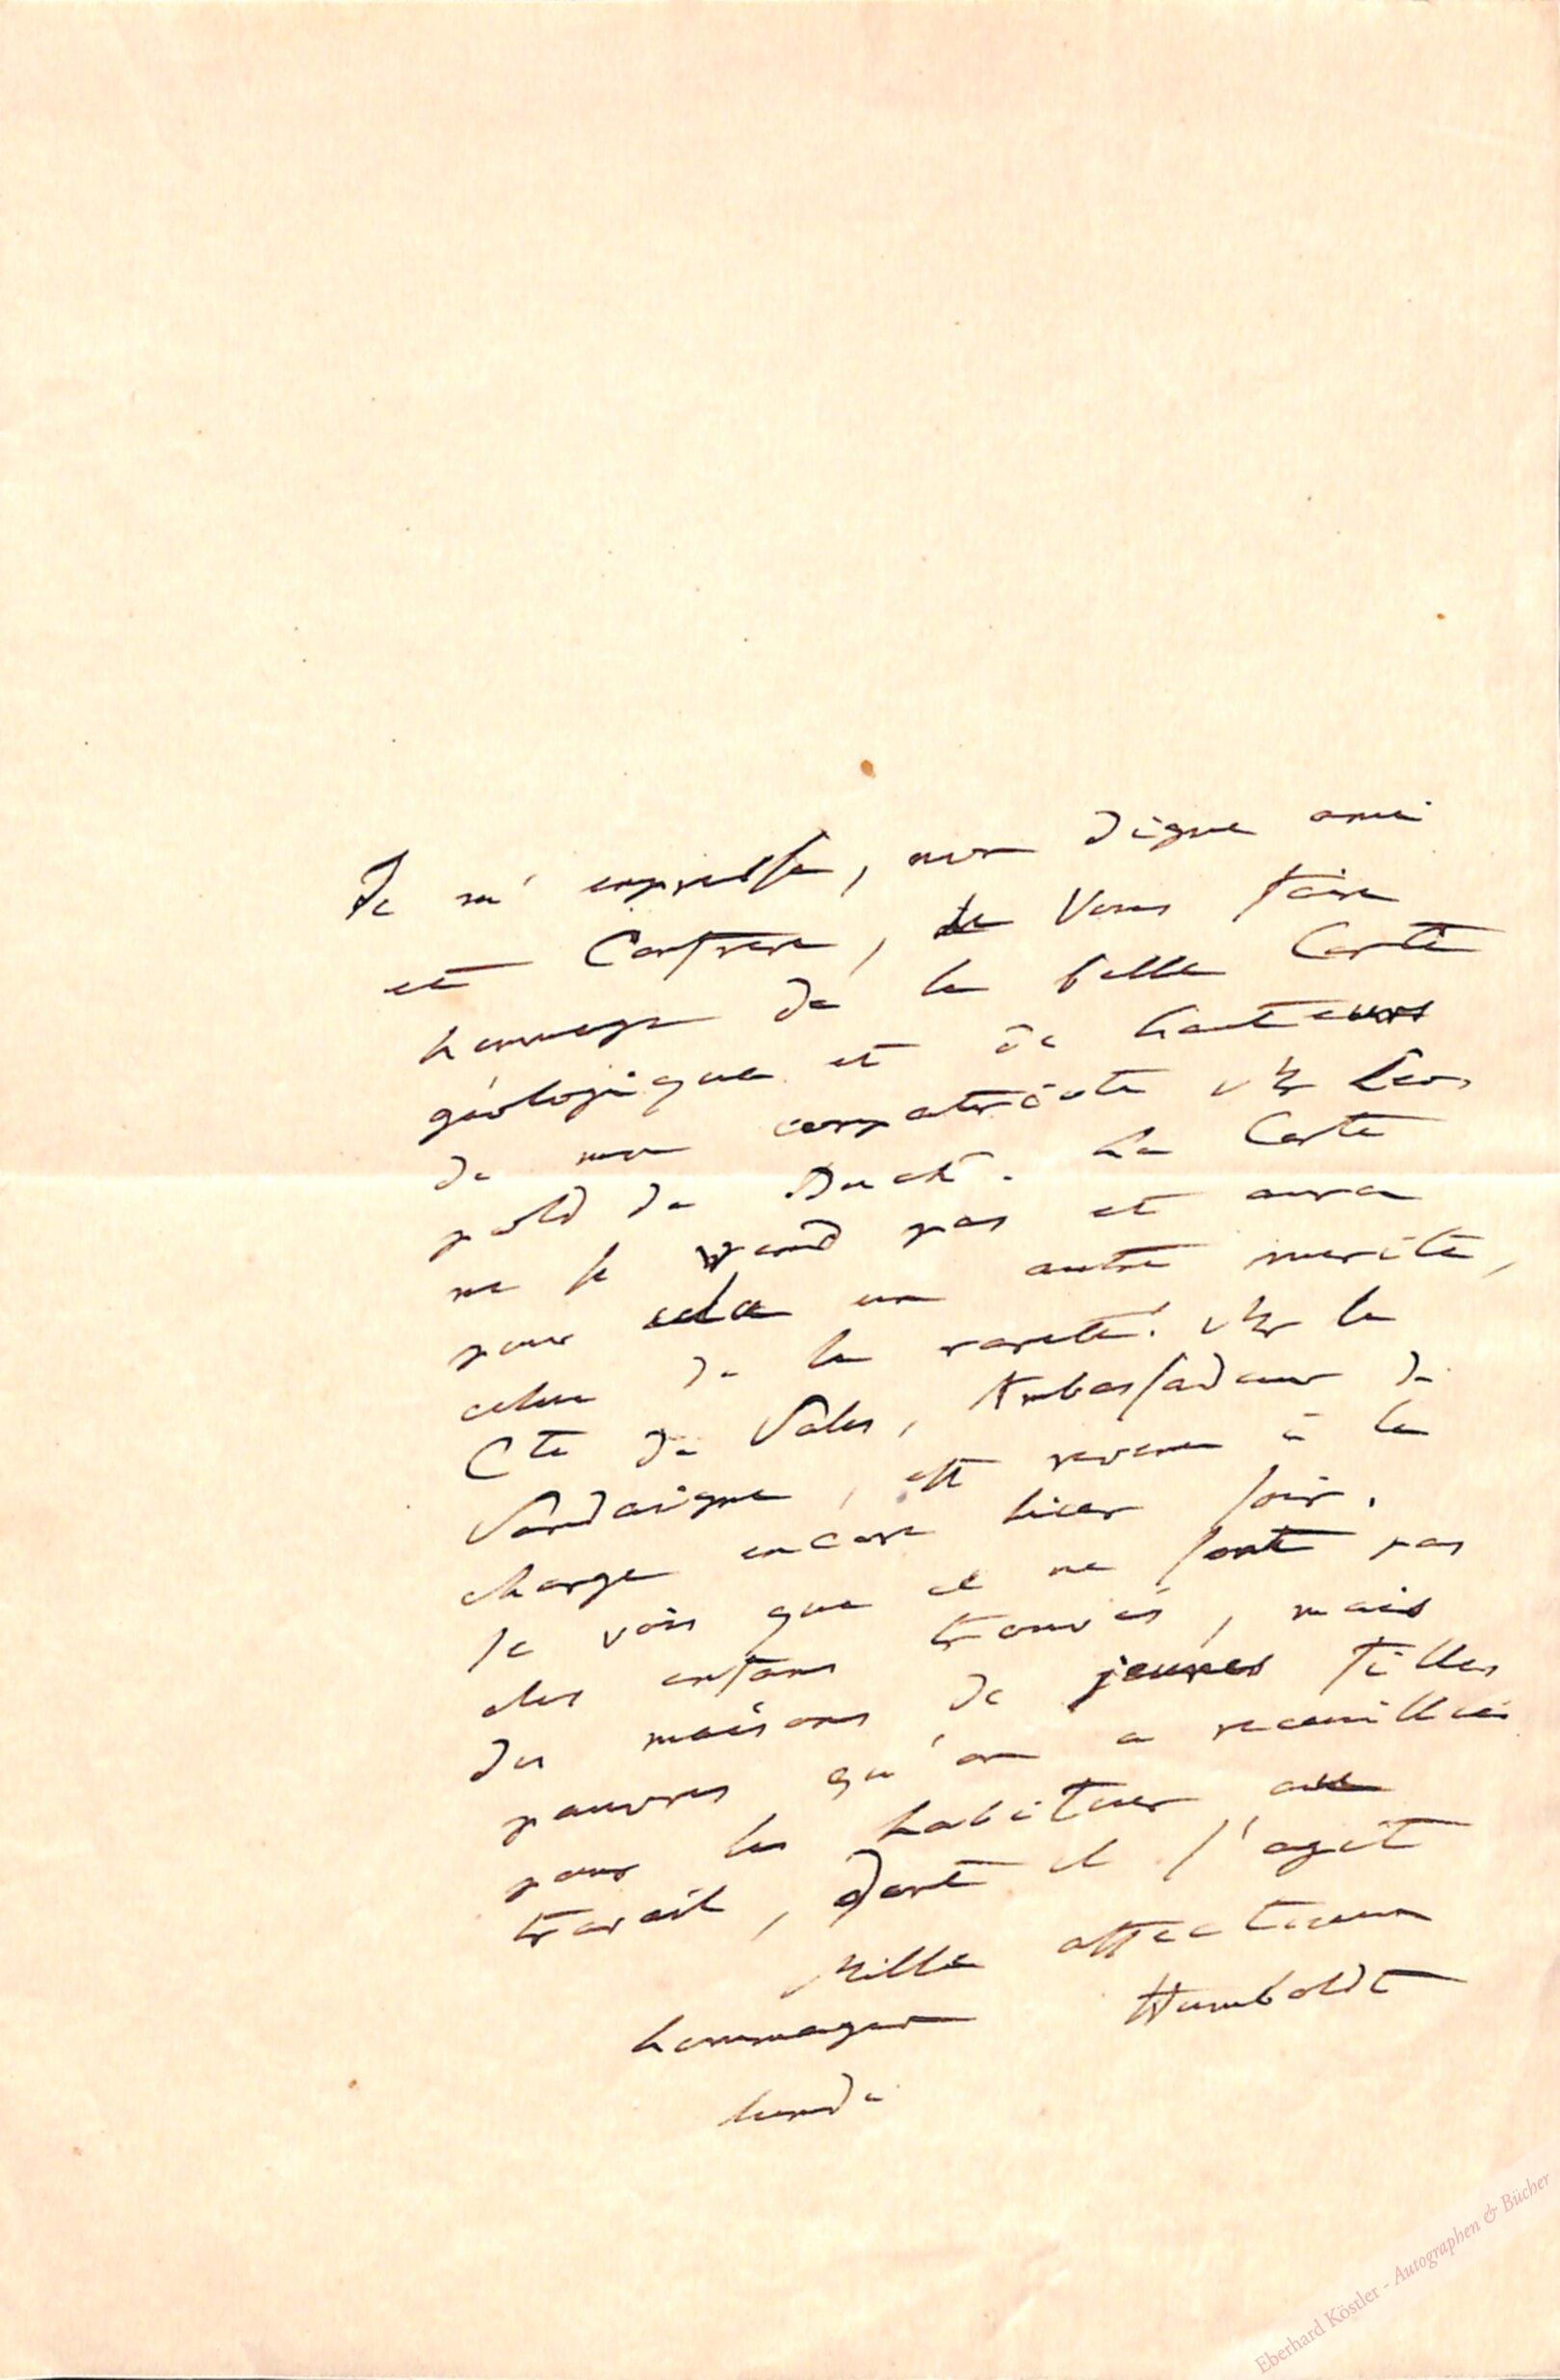 Je m'empresse, mon digne ami
et Confrere, de Vous faire
hommage de la belle Carte
géologique et de hauteurs
de mon compatriote Mr Leo
pold de Buch. La Carte
ne se vend pas et aura
pour cela un autre merite,
celui de la rareté. Mr le
Cte de Sales, Ambassadeur de
Sardaigne, est revenu à la
charge encore hier soir.
Je vois que ce ne sont pas
des enfans trouvés, mais
des maisons de jeunes filles
pauvres qu'on a recueillies
pour les habituer au
travail, dont il s'agit
Mille affectueux
hommages Humboldt
lundi
Eberhard Köstler - Autographen & Bücher